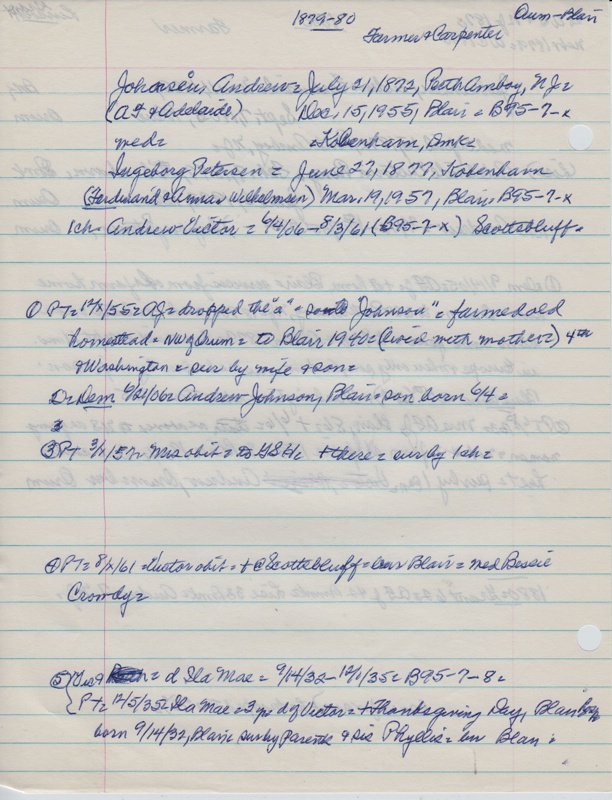 1879-80 Orum-Blair
Farmer & Carpenter
Johansen, Andrew = July 21, 1872, Perth Amboy, NJ=
(A F & Adelaide) Dec. 15, 1955, Blair = B95-7-x
med= =Kobenhavn, Dmk=
Ingeborg Petersen = June 27, 1877, Kobenhavn
(Ferdinand & Anna Wilhelmsen) Mar. 19, 1957, Blair, B95-7-x
1ch= Andrew Victor = 6/4/06 - 8/3/61 (B95-7-x) Scottsbluff=
① PT= 12/x/55= dropped the "a" = "Johnson" = farmed old
homestead = NW of Orum = to Blair 1940= (lived with mother=) 4th
& Washington = sur by wife & son=
Dem 6/21/06= Andrew Johnson, Blair = son born 6/4 =
③ PT 3/x/57= Mrs obit = to + there = sur by 1ch=
④ PT= 8/x/61 = Victor obit = + @ Scottsbluff = Blair = med Bessie
Crowdy=
⑤ = d Ila Mae = 9/14/32 - 12/1/35= B95-7-8=
PT= 12/5/35= Ila Mae = 3 yr d of Victor = + Thanksgiving Day, Blair
born 9/14/32, Blair= sur by Parents & sis Phyllis = Blair =